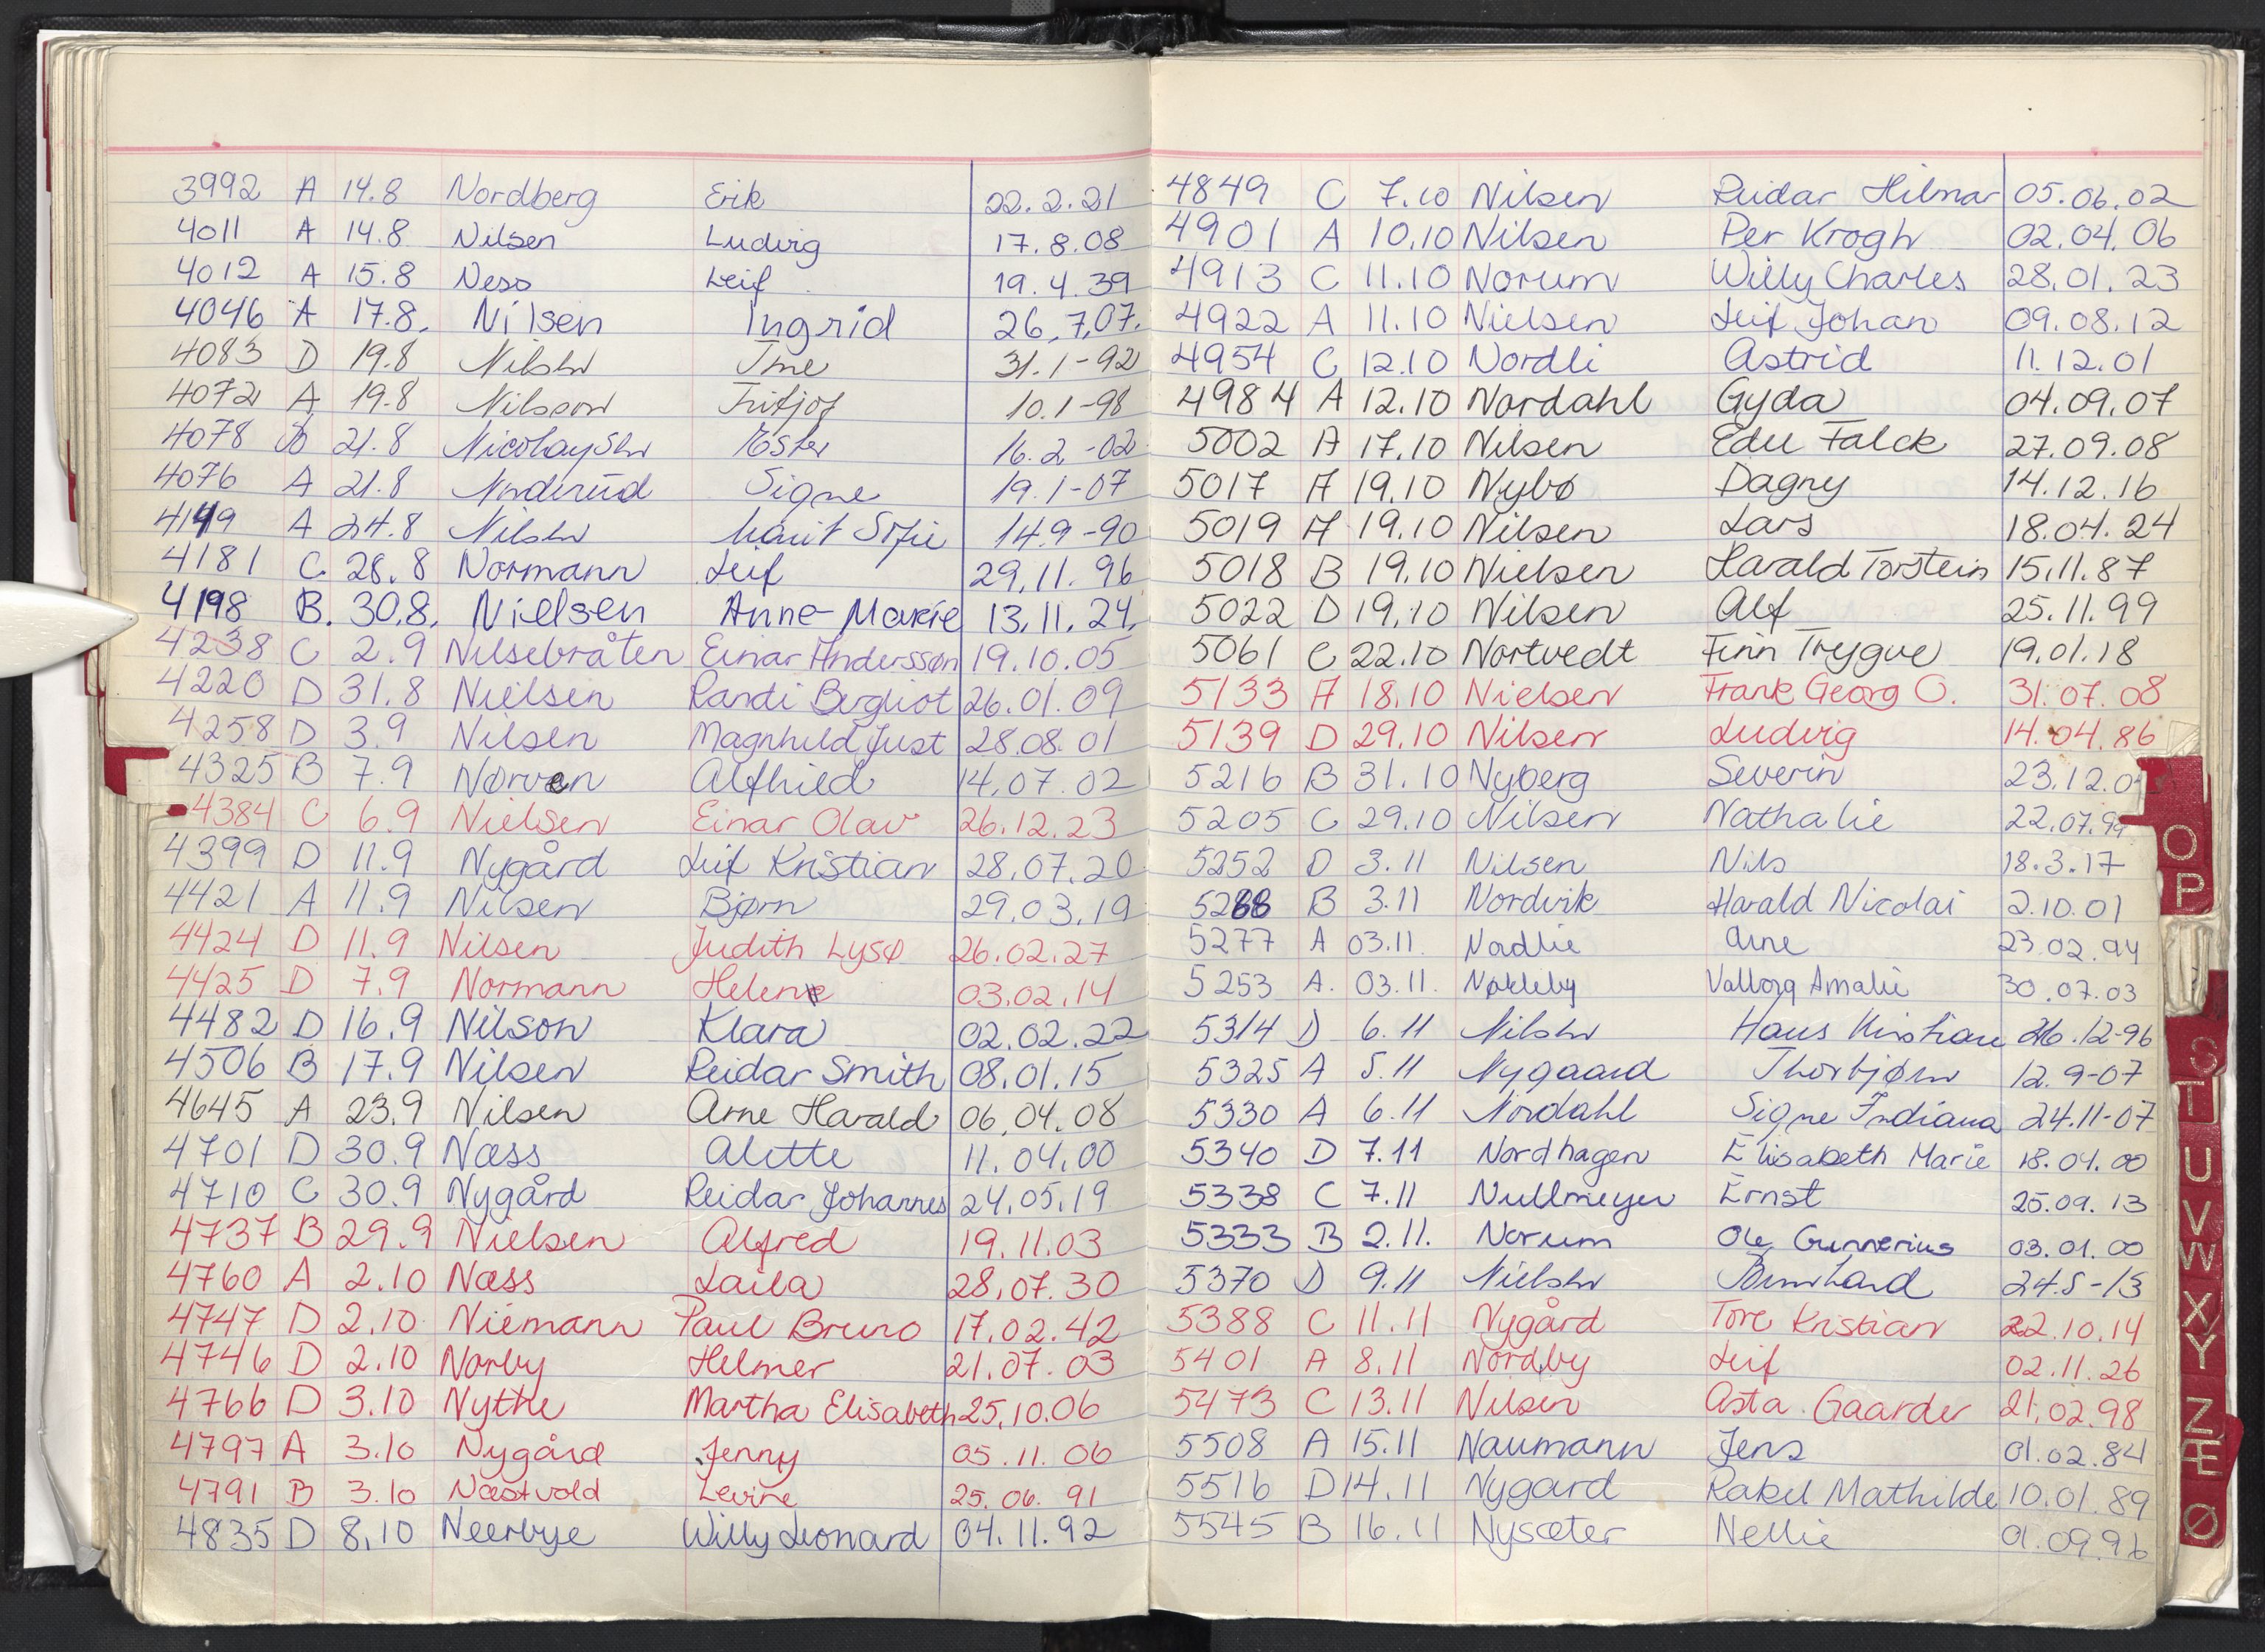 3992 A 14.8 Nordberg Erik 22.2.21
4011 A 14.8 Nilsen Ludvig 17.8.08
4012 A 15.8 Ness Leif 19.4.39
4046 A 17.8. Nilsen Ingrid 26.7.07.
4083 D 19.8 Nilsen 31.1-92
4072 A 19.8 Nilsson Fritjof 10.1-98
4078 21.8 Nicolaysen Ester 16.2-02
4076 A 21.8 Signe 19.1-07
A 24.8 Nilsen Marit Sofie 14.9-90
4181 C 28.8 Normann Leif 29.11.96
4198 B. 30.8. Nielsen Anne-Marie 13.11.24.
4238 C 2.9 Nilsebråten Einar Anderssøn 19.10.05
4220 D 31.8 Nielsen Randi Bergliot 26.01.09
4258 D 3.9 Nilsen Magnhild Just 28.08.01
4325 B 7.9 Nørven Alfhild 14.07.02
4384 C 6.9 Nielsen Einar Olav 26.12.23
4399 D 11.9 Nygård Leif Kristian 28.07.20
4421 A 11.9 Nilsen Bjørn 29.03.19
4424 D 11.9 Nilsen Judith Lysø 26.02.27
4425 D 7.9 Normann Helene 03.02.14
4482 D 16.9 Nilson Klara 02.02.22
4506 B 17.9 Nilsen Reidar Smith 08.01.15
4645 A 23.9 Nilsen Arne Harald 06.04.08
4701 D 30.9 Næss Alette 11.04.00
4710 C 30.9 Nygård Reidar Johannes 24.05.19
4737 B 29.9 Nielsen Alfred 19.11.03
4760 A 2.10 Næss Laila 28.07.30
4747 D 2.10 Niemann Paul Bruno 17.02.42
4746 D 2.10 Norby Helmer 21.07.03
4766 D 3.10 Nythe Martha Elisabeth 25.10.06
4797 A 3.10 Nygård Jenny 05.11.06
4791 B 3.10 Næstvold Levine 25.06.91
4835 D 8.10 Neerbye Willy Leonard 04.11.92
4849 C 7.10 Nilsen Reidar Hilmar 05.06.02
4901 A 10.10 Nilsen Per Krogh 02.04.06
4913 C 11.10 Norum Willy Charles 28.01.23
4922 A 11.10 Nielsen Leif Johan 09.08.12
4954 C 12.10 Nordli Astrid 11.12.01
4984 A 12.10 Nordahl Gyda 04.09.07
5002 A 17.10 Nilsen Falck 27.09.08
5017 A 19.10 Nybø Dagny 14.12.16
5019 A 19.10 Nilsen Lars 18.04.24
5018 B 19.10 Nielsen Harald Torstein 15.11.87
5022 D 19.10 Nilsen Alf 25.11.99
5061 C 22.10 Nortvedt Finn Trygve 19.01.18
5133 A 18.10 Nielsen Frank Georg O. 31.07.08
5139 D 29.10 Nilsen Ludvig 14.04.86
5216 B 31.10 Nyberg Severin 23.12.0
5205 C 29.10 Nilsen Nathalie 22.07.99
5252 D 3.11 Nilsen Nils 18.3.17
5288 B 3.11 Nordvik Harald Nicolai 2.10.01
5277 A 03.11. Nordlie Arne 23.02.94
5253 A. 03.11. Nøkleby Valborg Amalie 30.07.03
5314 D 6.11 Nilsen Hans Kristian 26.12-96
5325 A 5.11 Nygaard Thorbjørn 12.9-07
5330 A 6.11 Nordahl Signe Indiana 24.11-07
5340 D 7.11 Nordhagen Elisabeth Marie 18.04.00
5338 C 7.11 Nullmeyer Ernst 25.09.13
5333 B 2.11. Norum Ole Gunnerius 03.01.00
5370 D 9.11 Nielsen Bernhard 24.5-13
5388 C 11.11 Nygård Tore Kristian 22.10.14
5401 A 8.11 Nordby Leif 02.11.26
5473 C 13.11 Nilsen Asta Gaarder 21.02.98
5508 A 15.11 Naumann Jens 01.02.84
5516 D 14.11 Nygard Rakel Mathilde 10.01.89
5545 B 16.11 Nysæter Nellie 01.09.96
O
P
S
T
U
V
W
X
Y
Z
Æ
Ø